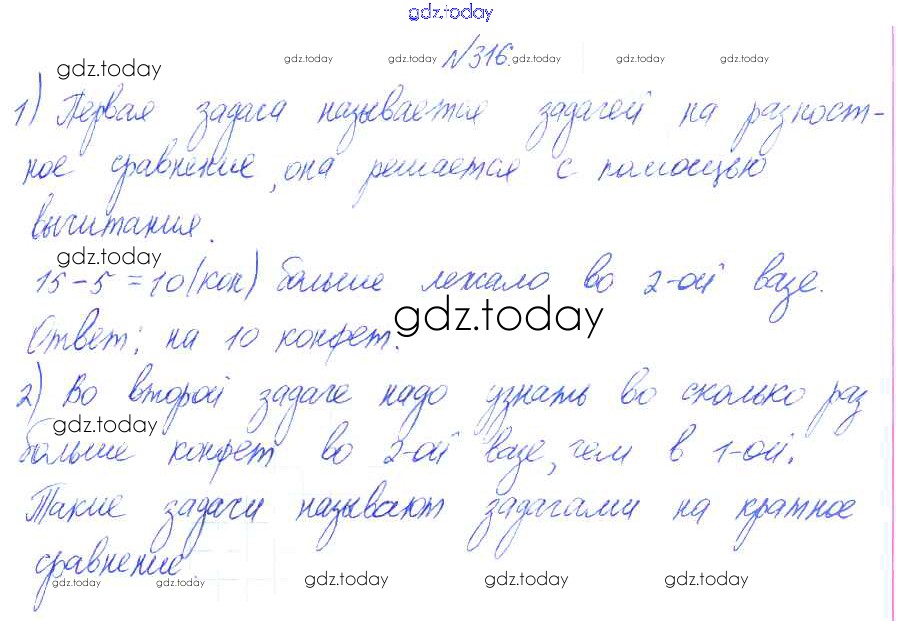 gdz.today
№316.
gdz.today gdz.today gdz.today gdz.today gdz.today gdz.today
1) Первая задача называется задачей на разност-
ное сравнение, она решается с помощью
вычитания.
gdz.today
15-5=10(кон) больше лежало во 2-ой вазе.
gdz.today
Ответ: на 10 конфет.
2) Во второй задаче надо узнать во сколько раз
gdz.today
больше конфет во 2-ой вазе, чем в 1-ой.
Такие задачи называют задачами на кратное
сравнение.
gdz.today gdz.today gdz.today gdz.today gdz.today